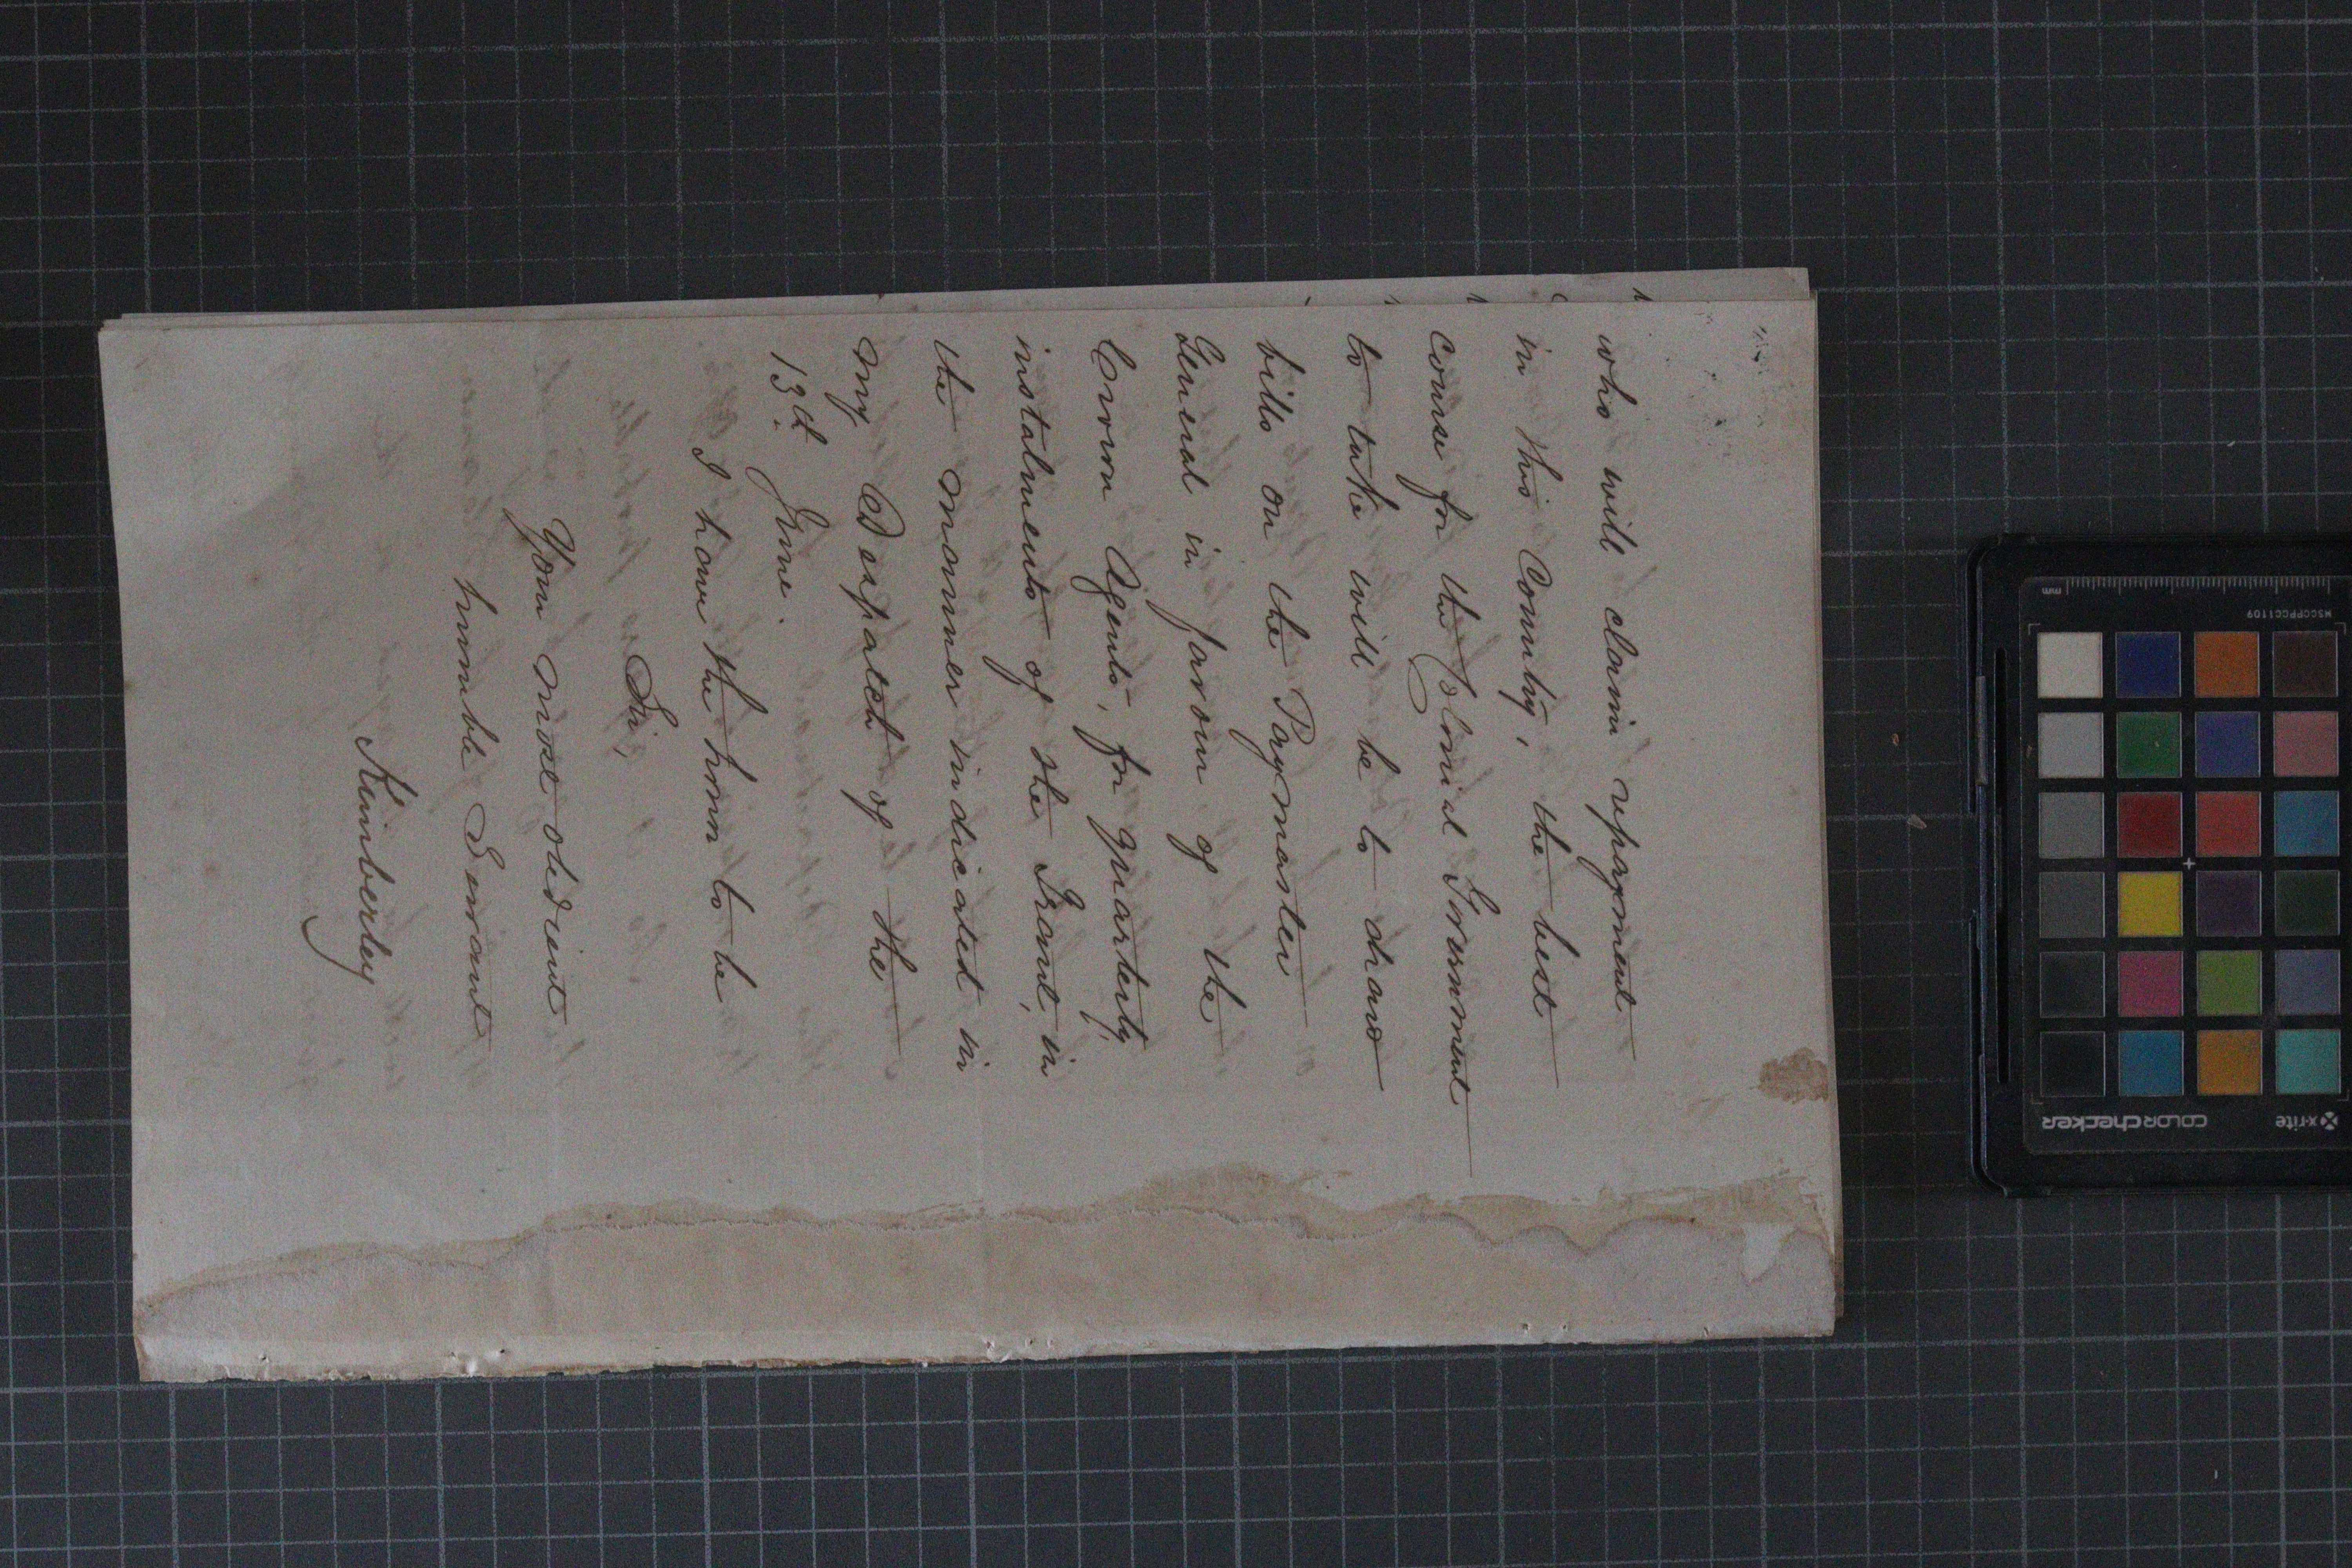 who will claim repayment
in this Country, the best
course for the Colonial Government
to take will be to draw
bills on the Paymaster
General in favour of the
Crown Agents, for quarterly
instalments of the Grant, in
the manner indicated in
my Despatch of the
13th June.
I have the honor to be
Sir,
Your most obedient
humble Servant
Kimberley
mm
MSCCPPCC1109
x-rite
COLORchecker